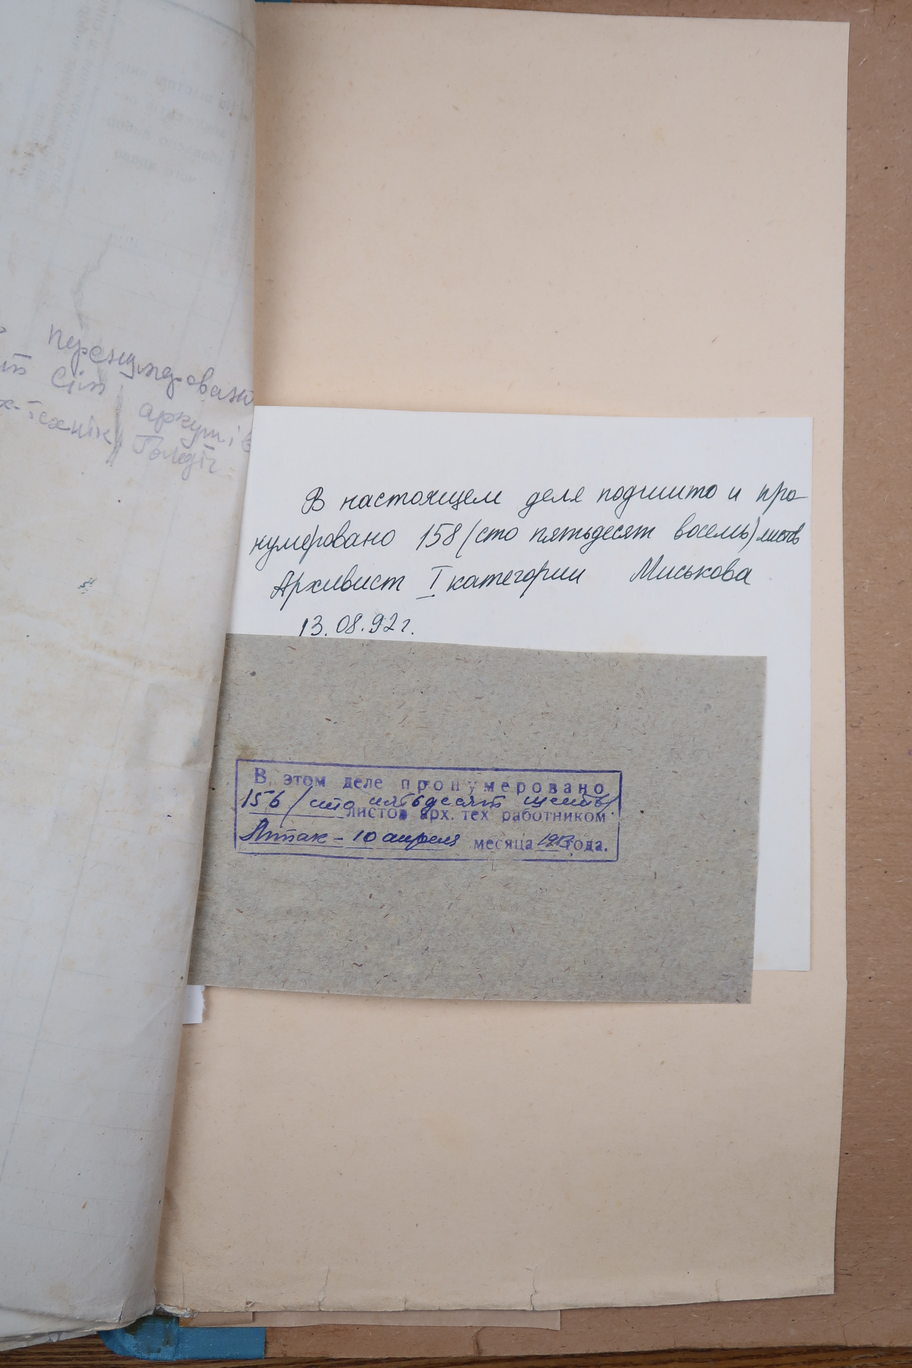 перенумеровано
сім аркушів
технік
В настоящем деле подшито и про-
нумеровано 158 (сто пятьдесят восемь) листов
Архивист I категории Миськова
13.08.92г.
В этом деле пронумеровано
156 (сто пятьдесят шесть)
листов арх. тех работником
10 апреля месяца года.